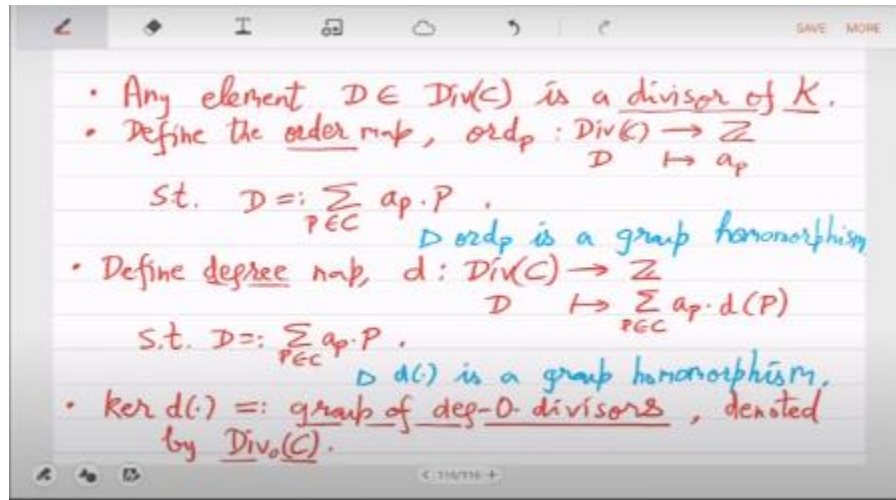 SAVE MORE
• Any element D ∈ Div(C) is a divisor of K.
• Define the order map, ord_P : Div(C) → ℤ
D ↦ a_P
s.t. D =: Σ_{P∈C} a_P · P .
▷ ord_P is a group homomorphism
• Define degree map, d : Div(C) → ℤ
D ↦ Σ_{P∈C} a_P · d(P)
s.t. D =: Σ_{P∈C} a_P · P .
▷ d(·) is a group homomorphism.
• ker d(·) =: group of deg-0-divisors , denoted
by Div₀(C).
< 116/116 +